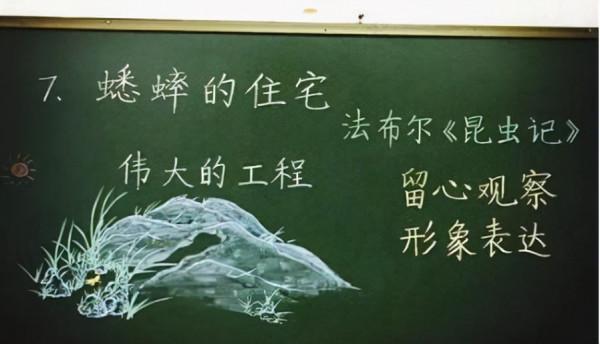 7、蟋蟀的住宅
法布尔《昆虫记》
伟大的工程
留心观察
形象表达